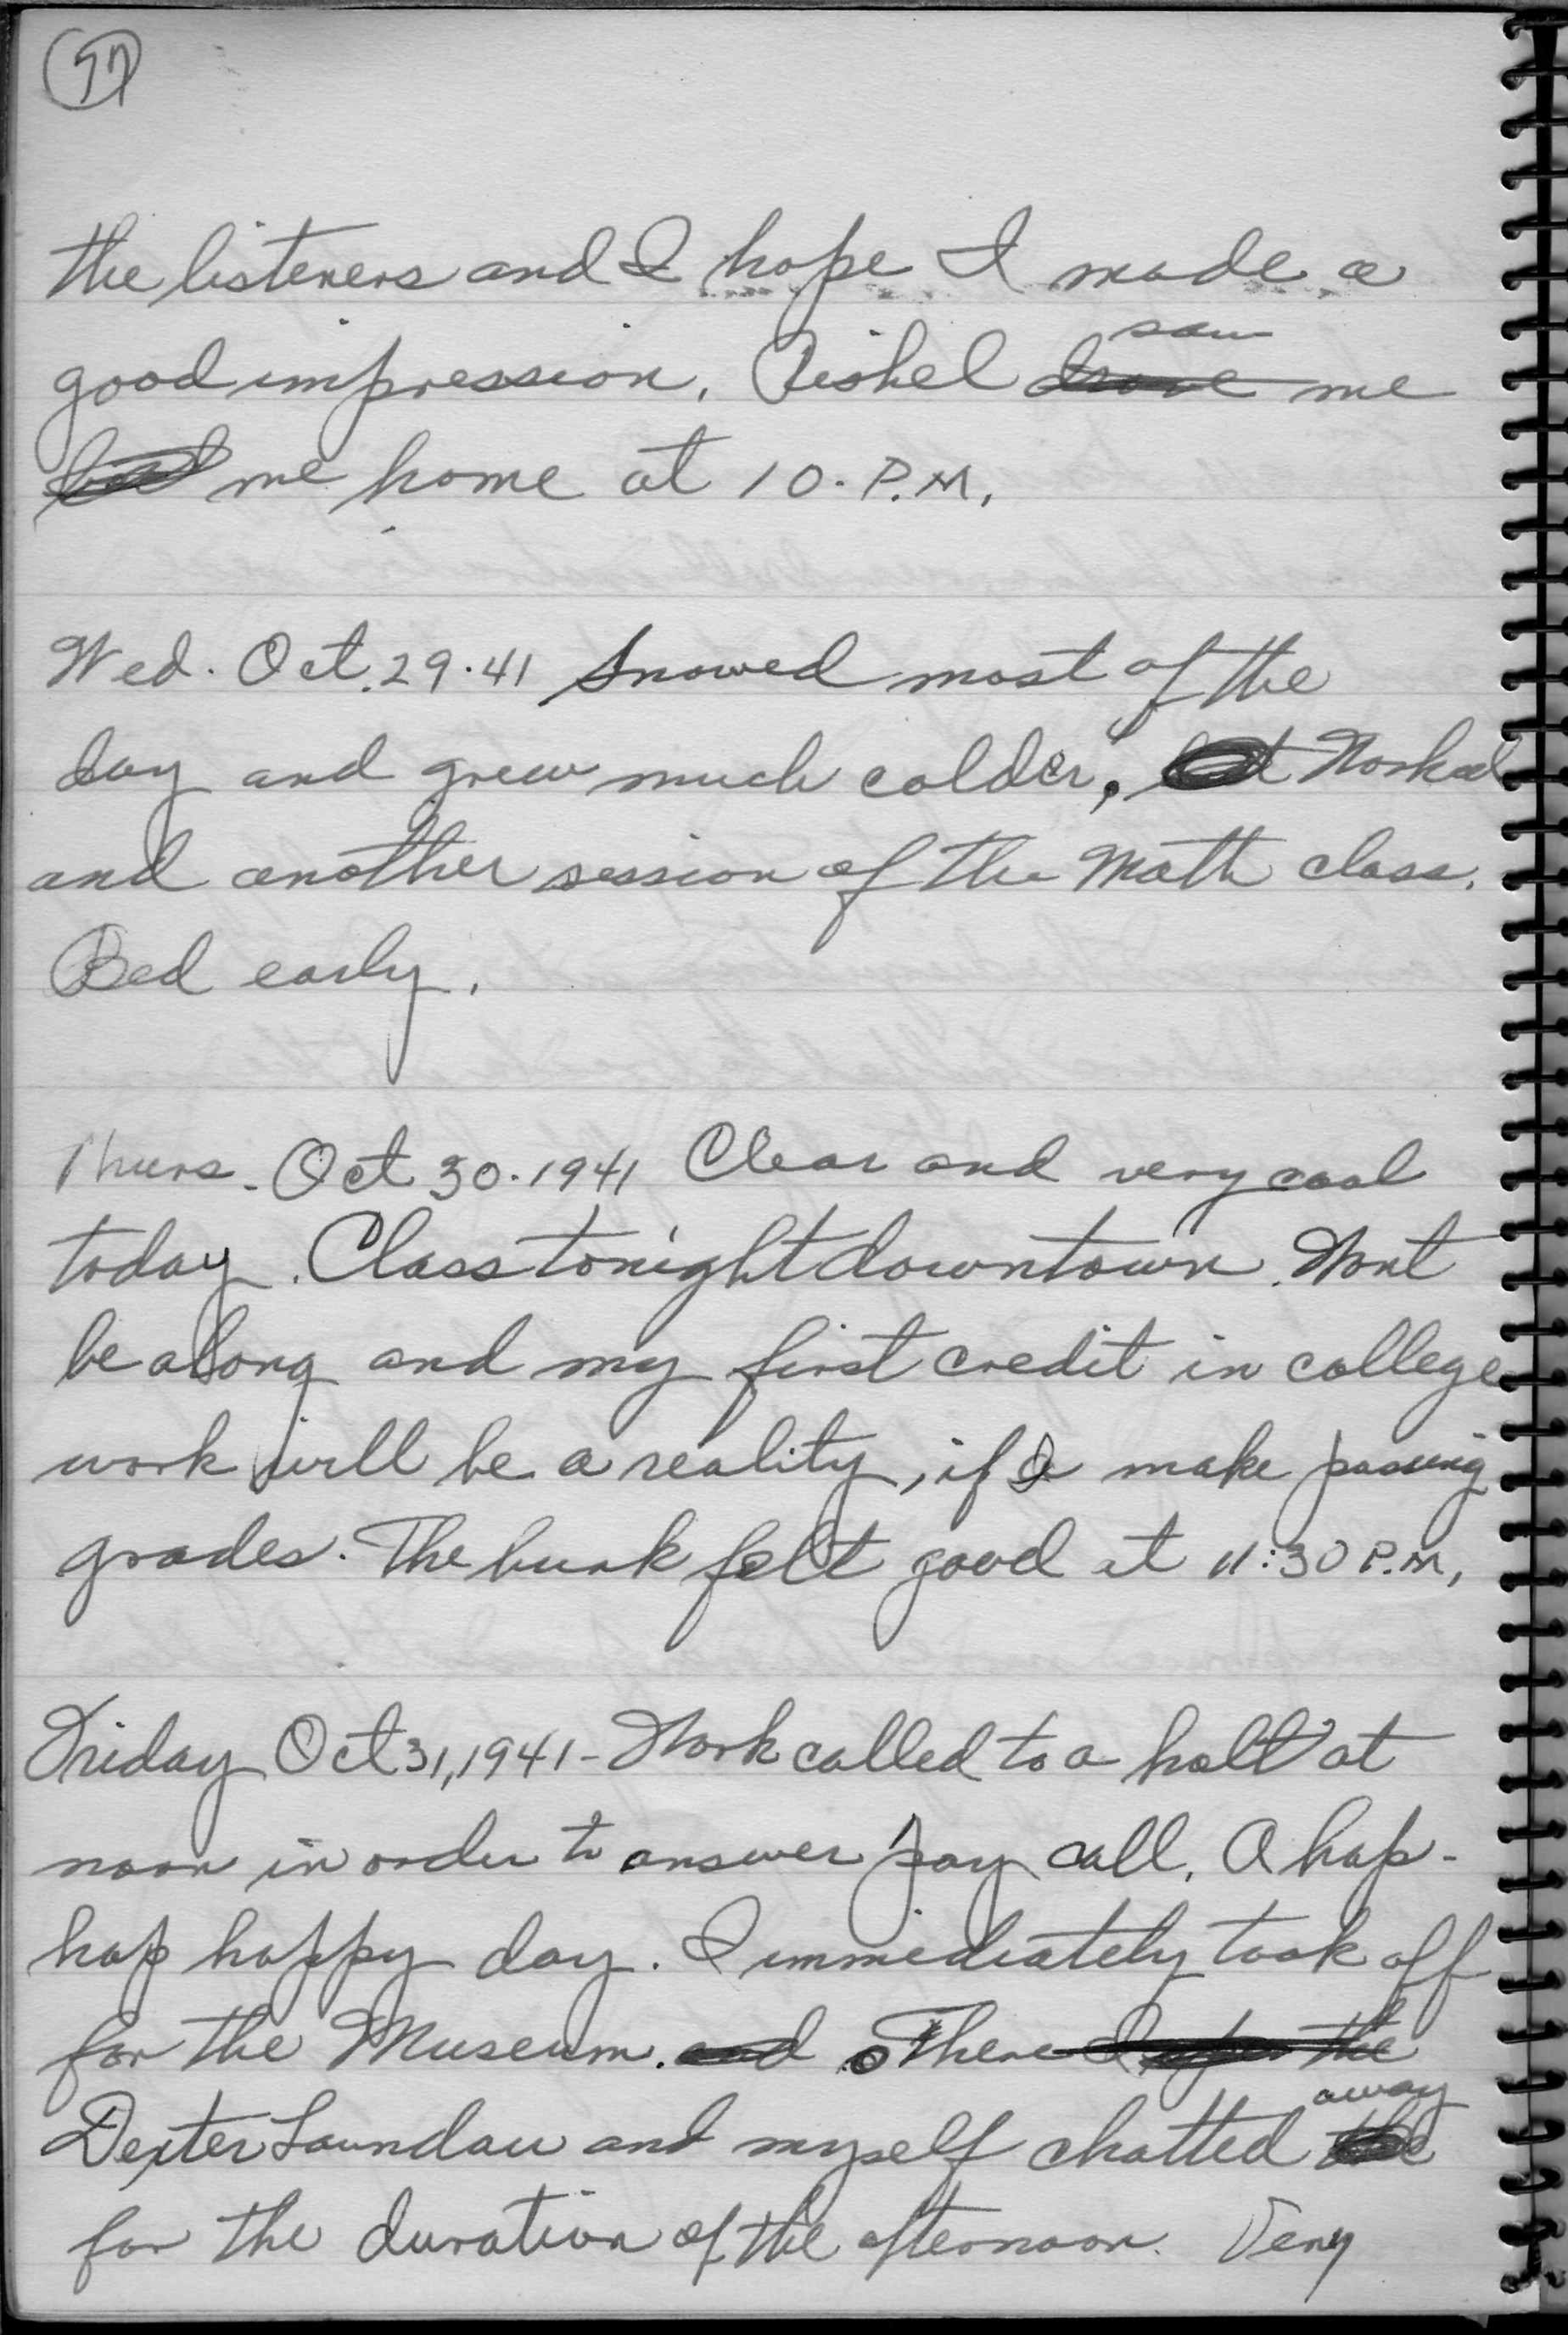 57
the listeners and I hope I made a
good impression. Rishel saw me
me home at 10. P.M.
Wed. Oct. 29.41 Snowed most of the
day and grew much colder, Worked
and another session of the Math class.
Bed early.
Thurs. Oct 30.1941 Clear and very cool
today. Class tonight downtown. Wont
be along and my first credit in college
work will be a reality, if I make passing
grades. The bunk felt good at 11:30 P.M.
Friday Oct 31, 1941 - Work called to a halt at
noon in order to answer pay call. A hap-
hap happy day. I immediately took off
for the Museum. and There I the
away
Dexter and myself chatted the
for the duration of the afternoon. Very